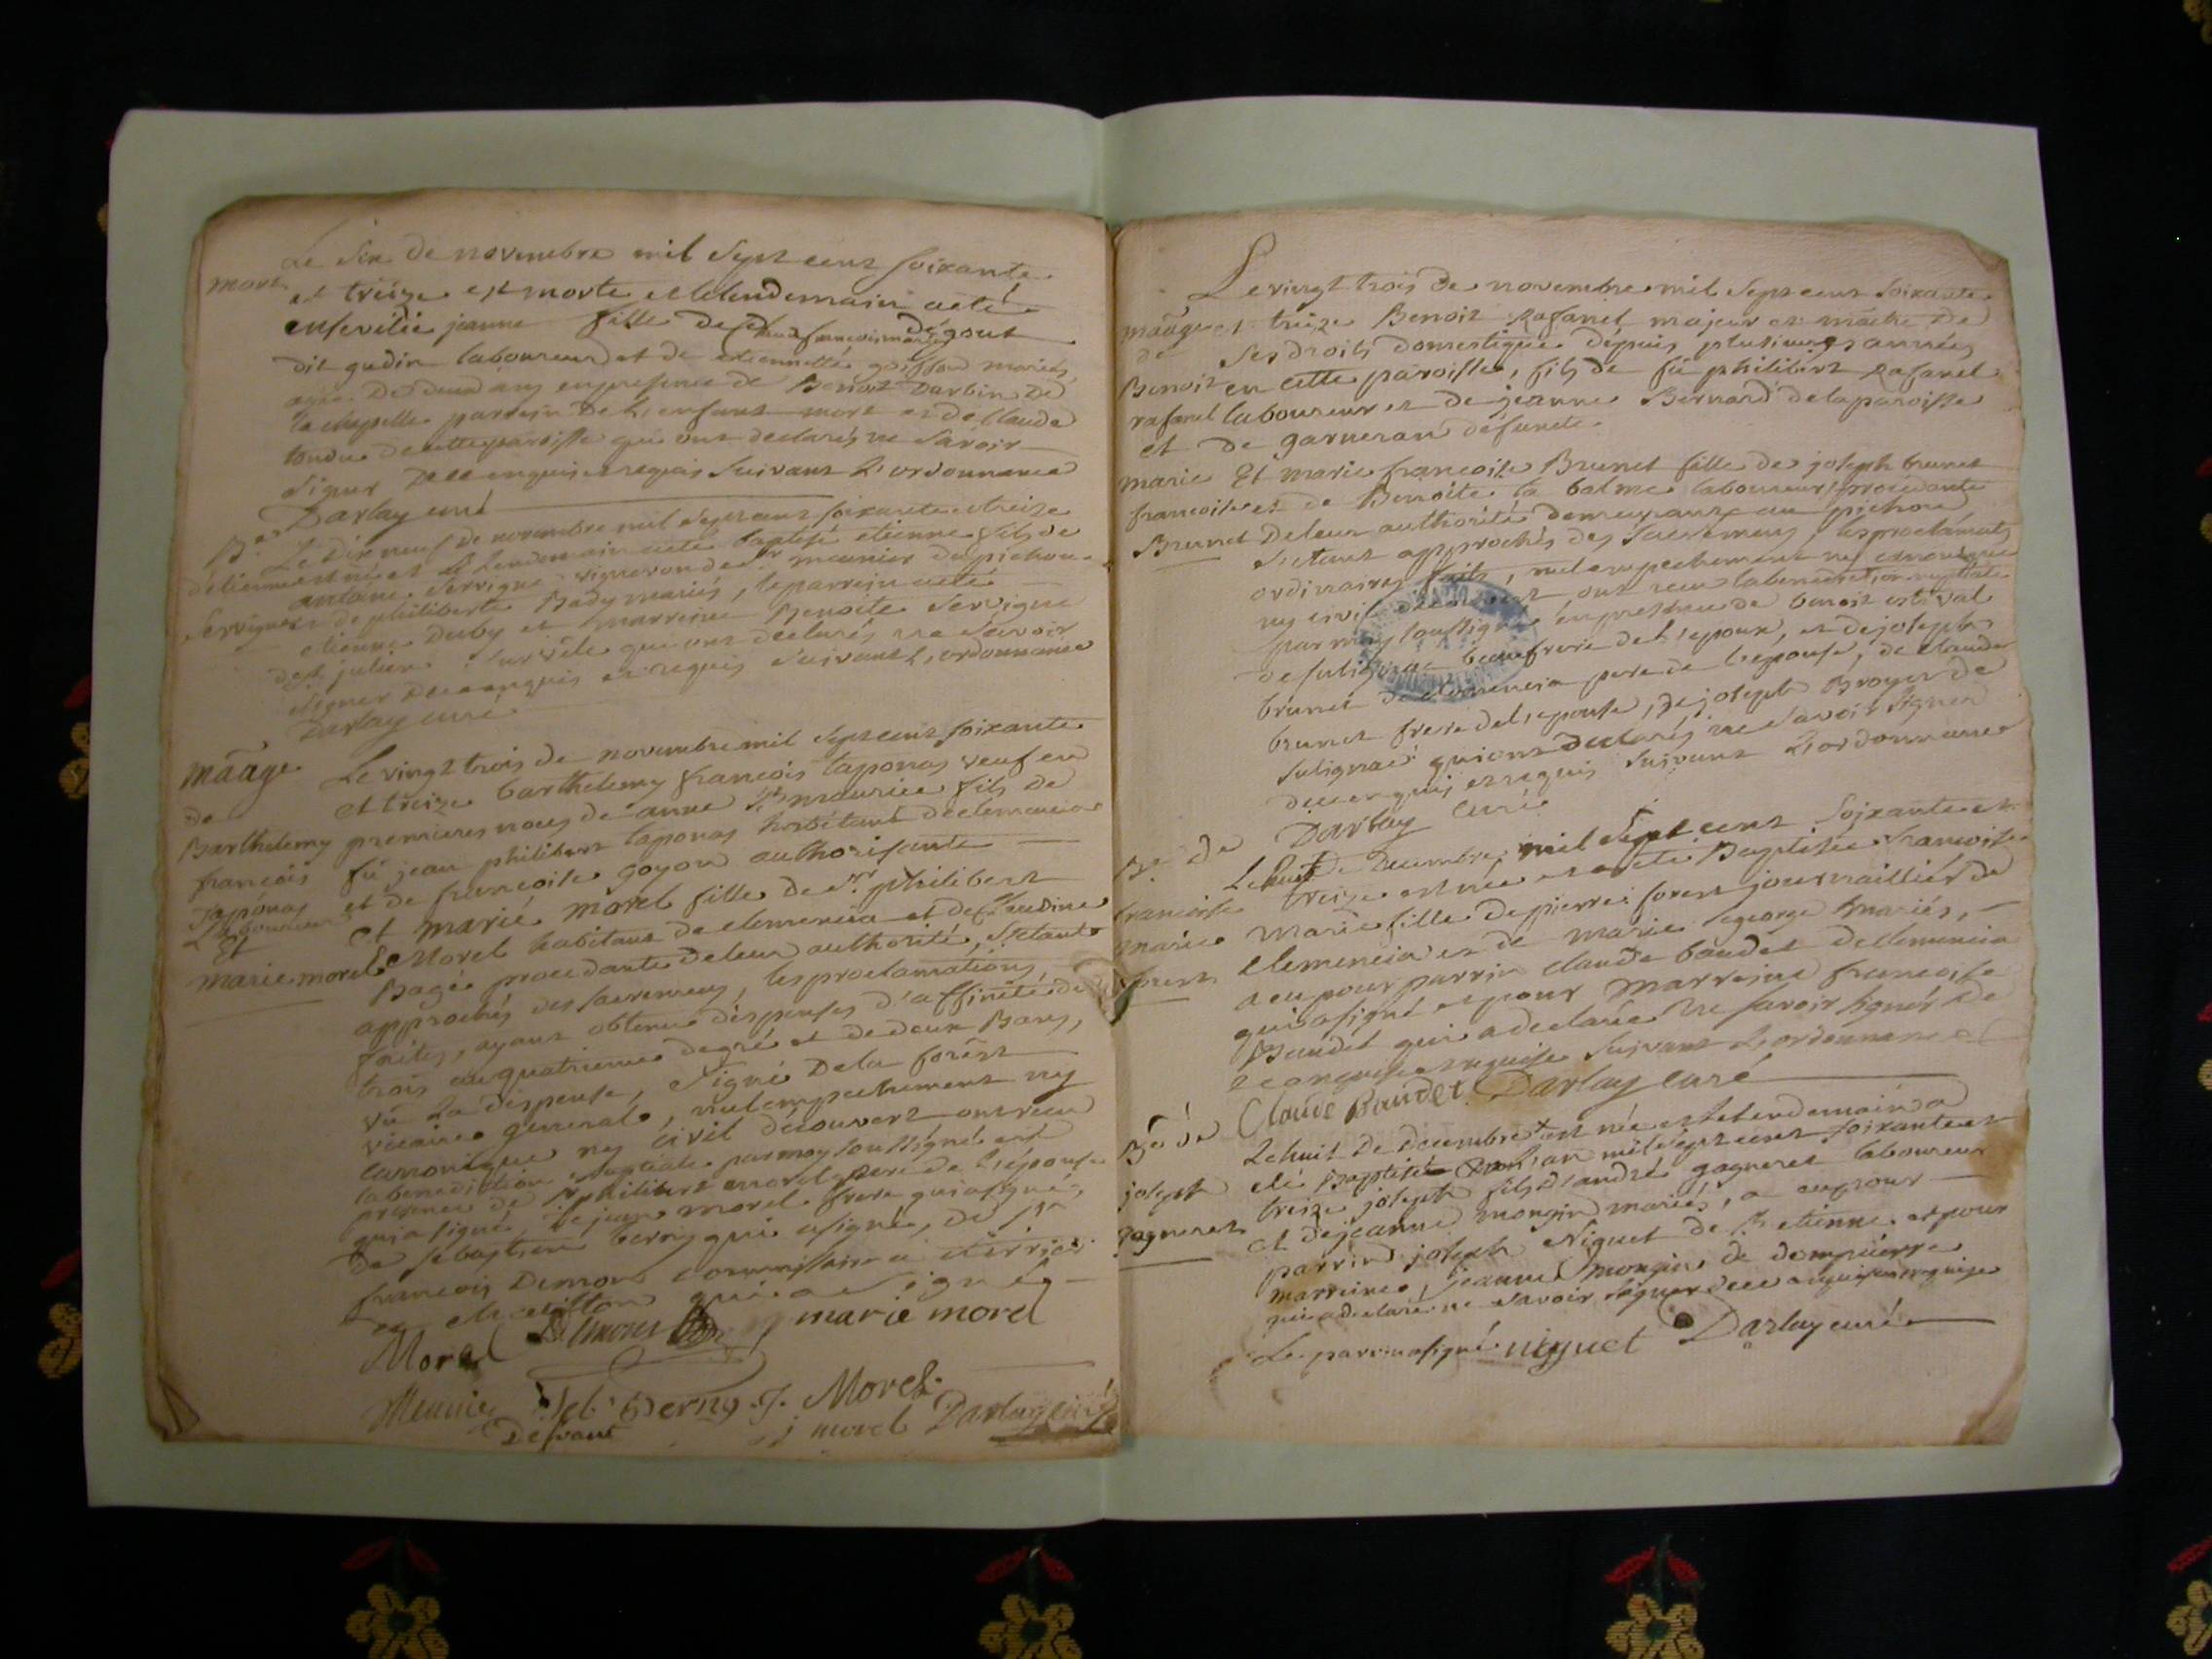 Le six de novembre mil sept cent soixante
mort
et treize est morte et le lendemain a eté
ensevélie jeanne fille de françois marie dégout
dit gudin laboureur et de etiennette goiffon mariés
agée de deux ans en presence de Benoit Darbin de
la chapelle parrein de l'enfant mort et de Claude
tondu de cette paroisse qui ont declarés ne savoir
signer de ce enquis et requis suivant L'ordonnance
Darlay curé
Le dix neuf de novembre mil sept cent soixante et treize
d'etienne est né et le lendemain a eté baptisé etienne fils de
Servigne antoine Servigne vigneron de mr meunier du pichon
et de philiberte Bady mariés, le parrein a eté
etienne Duby et marreine Benoite Servigne
de st julien sur vêle qui ont declarés ne savoir
signer de ce enquis et requis suivant L'ordonnance
Darlay curé
mãage Le vingt trois de novembre mil sept cent soixante
de et treize barthelemy françois taponas veuf en
Barthelemy premieres noces de anne st maurice fils de
françois fû jean philibert taponas habitant de clemencia
Taponas et de francoise goyon authorisante
Laboureur
Et et marie morel fille de sr philibert
marie morel Morel habitant de clemencia et de Claudine
Bagé procedante de leur authorité, s'etant
approchés des sacremens, les proclamations
faites, ayant obtenu dispenses d'affinité de
trois au quatrieme degré et de deux Bans,
vû La dispense, signé Dela forêst
vicaire general, nul empechement ny
canonique ny civil découvert ont reçu
la benediction nuptiale par moy soussigné en
presence de sr philibert morel pere de l'épouse
qui a signé, de jean morel frere qui a signé,
de sebastien berny qui a signé, de sr
françois Dimon commissaire a terrier
en chatillon qui a signé
Morel Dimons marie morel
Meunie Seb. Berny J. Morel
Desvant j morel Darlay curé
Le vingt trois de novembre mil sept cent soixante
mãage et treize Benoit Rafanel majeur et maitre de
de ses droits domestique depuis plusieurs années
Benoit en cette paroisse, fils de fû philibert Rafanel
rafanel laboureur et de jeanne Bernard de la paroisse
et de garneran défunte.
marie Et marie francoise Brunet fille de joseph brunet
francoise et de Benoite la balme laboureur procedante
Brunet de leur authorité demeurant au pichon
s'etant approchés des sacremens, les proclamats
ordinaires faits, nul empechement ny canonique
ny civil decouvert ont recu la benediction nuptiale
par moy soussigné en presence de benoit estival
de sulignat beaufrere de l'epoux, et de joseph
brunet de clemencia pere de l'epouse, de claude
brunet frere de l'epouse, de joseph Broyer de
sulignat qui ont declarés ne savoir signer
de ce enquis et requis suivant L'ordonnance
Darlay curé
Bê de Le huit de decembre mil sept cent soixante et
francoise treize est née et a eté Baptisée francoise
marie marie fille de pierre forest journaillier de
forest clemencia et de marie george mariés,
a eu pour parrin claude baudet de clemencia
qui a signé et pour marreine francoise
Baudet qui a declarée ne savoir signér de
ce enquise et requise suivant L'ordonnance
Claude Baudet Darlay curé
Bê de Le huit de decembre est née et le lendemain a
joseph eté Baptisé l'an mil sept cent soixante et
gagneret treize joseph fils d'andré gagneret laboureur
et de jeanne mongin mariés, a eu pour
parrin joseph Niguet de st etienne et pour
marreine, jeanne mongin de dompierre
qui a declaré ne savoir signer de ce enquise et requise
Le parrin a signé niguet Darlay curé